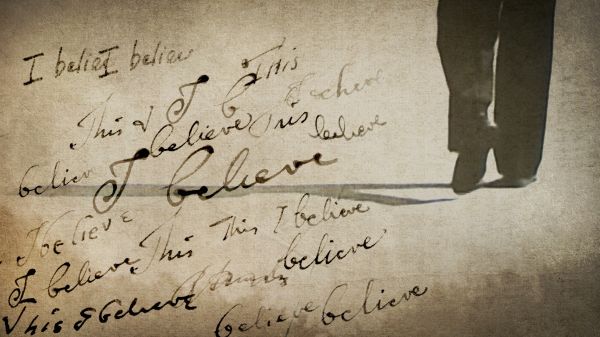 I belief I believe
This
This & I
believe This believe
believe I believe
I believe
This This I believe
I believe believe
This & believe
believe believe